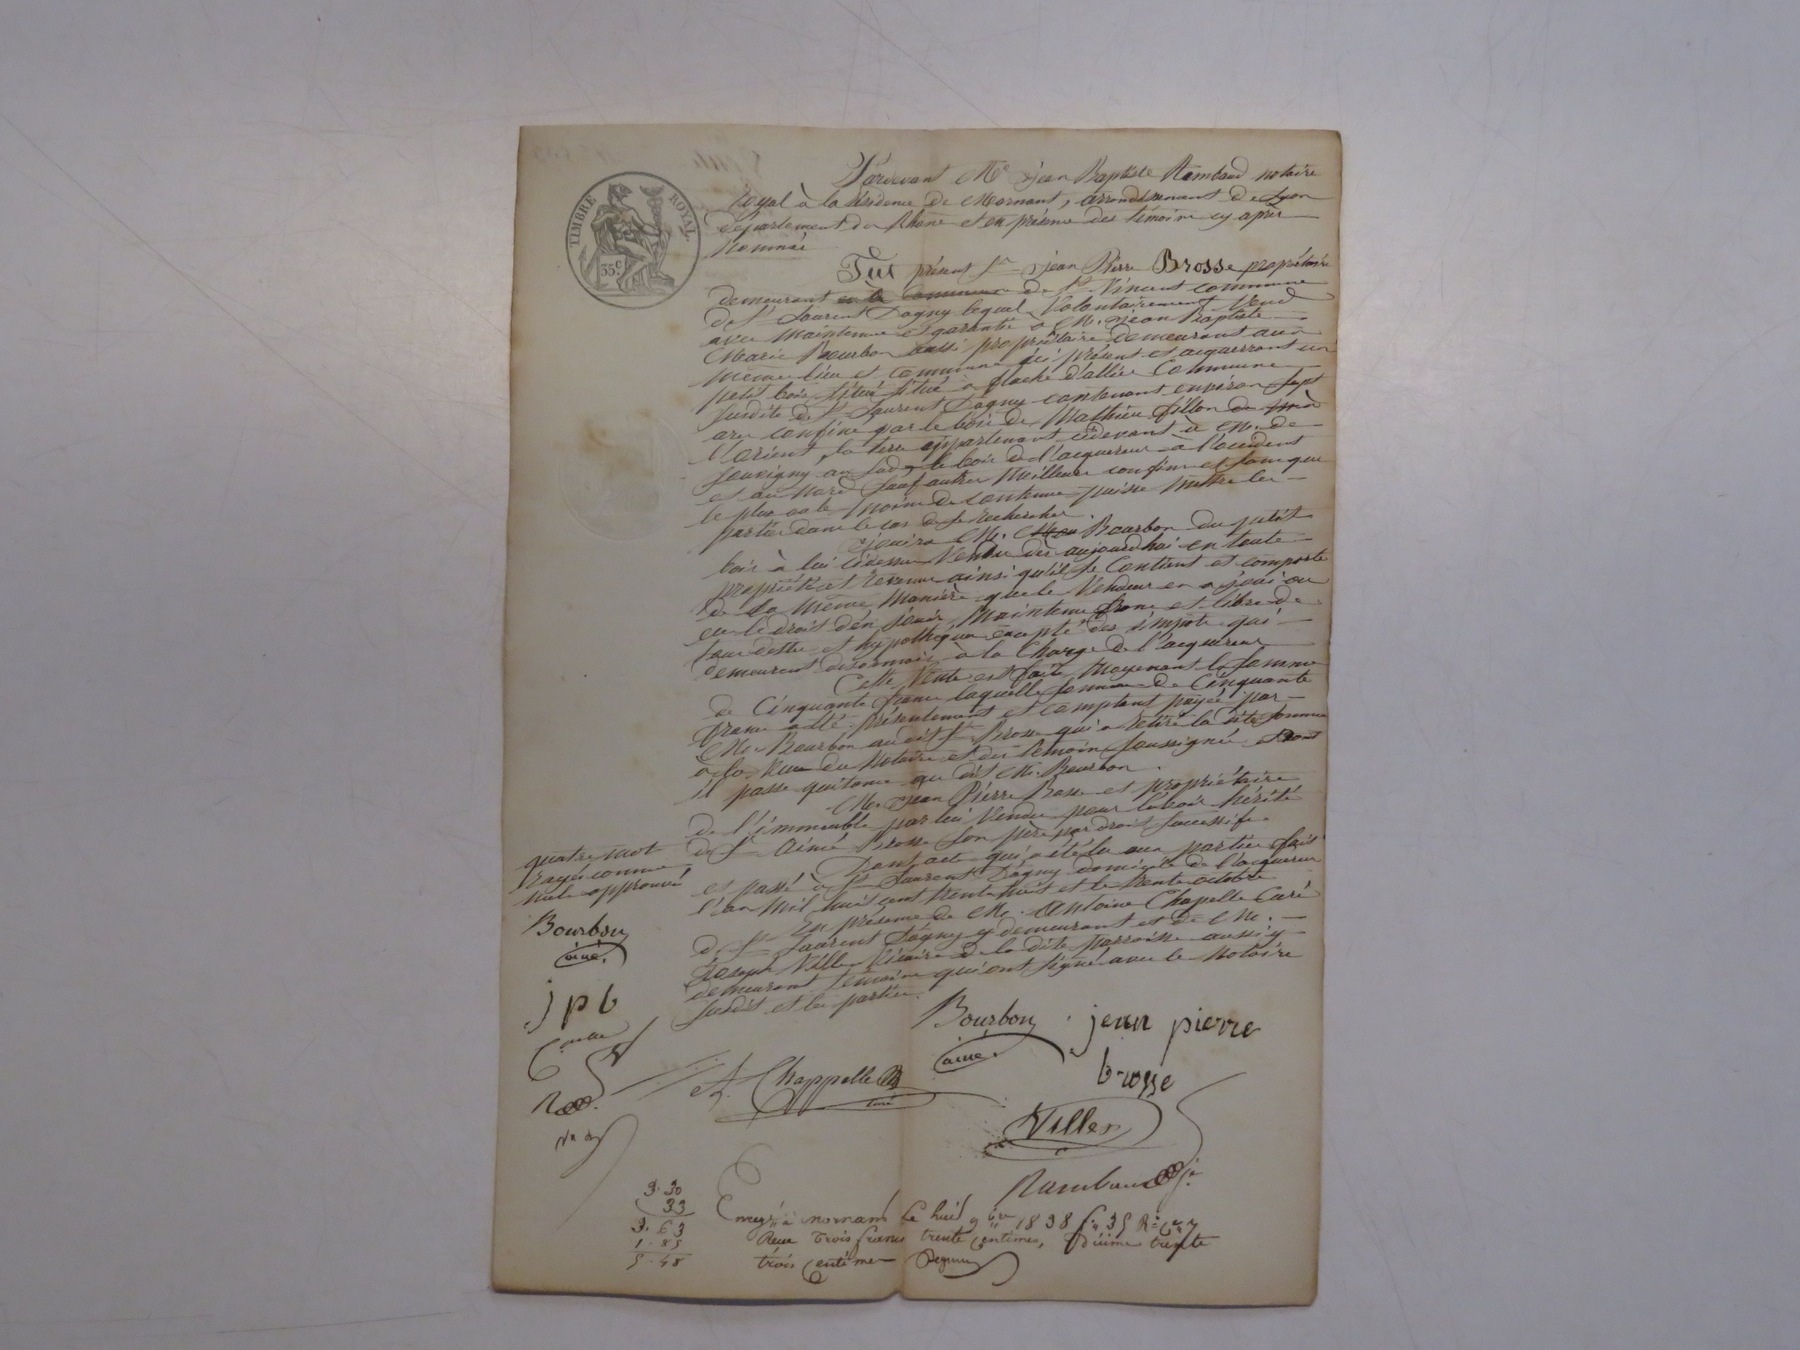 TIMBRE ROYAL
35.c
Pardevant Me jean Baptiste Rambaud notaire
royal à la résidence de Mornant, arrondissement de Lyon
département du Rhône et en présence des témoins cy après
nommés
Fut présent Sr jean Pierre Brosse propriétaire
demeurant en la Commune de St Vincent commune
de St Laurent Dagny lequel Volontairement Vend
avec maintenue et garantie à M. jean Baptiste
Marie Bourbon aussi propriétaire demeurant aux
même lieu et commune ici présent et acquerrant un
petit bois situé à flache d'allier Commune
susdite de St Laurent Dagny contenant environ sept
ares confiné par le bois de Mathieu fillon de à
l'orient, la terre appartenant cidevant à M. de
Souvigny au sud, le bois de l'acquereur à l'occident
et au nord sauf autres meilleurs confins et sans que
le plus ou le moins de contenue puisse mettre les
parties dans le cas de se rechercher.
jouira M. Bourbon du petit
bois à lui cidessus Vendu dès aujourdhui en toute
propriété et revenu ainsi qu'il se Contient et comporte
de la même manière que le Vendeur en a joui ou
eu le droit d'en jouir, Maintenu franc et libre de
tous dettes et hypothèques excepté des impôts qui
demeurent désormais à la Charge de l'acquereur
Cette Vente est faite moyenant la somme
de Cinquante francs laquelle somme de Cinquante
francs a été présentement et comptant payée par
M. Bourbon audit Sr Brosse qui a retiré la dite somme
à la Vue du Notaire et des témoins soussignés et dont
il passe quitance au dit M. Bourbon.
M. jean Pierre Brosse est propriétaire
de l'immeuble par lui Vendu pour l'avoir hérité
de Sr Aimé Brosse son père par droit successif.
Dont acte qui a été lu aux parties fait
et passé à St Laurent Dagny domicile de l'acquereur
l'an mil huit cent trente huit et le trente octobre
En présence de M. Antoine Chapelle Curé
de St Laurent Dagny y demeurant et de M.
Joseph Viller Vicaire de la dite parroisse aussi y
demeurant témoins qui ont signé avec le Notaire
susdit et les parties.
quatre mot
rayés comme
nuls approuvé
Bourbon
ainé.
j p b
Bourbon
ainé.
jean pierre
brosse
A. Chappelle
curé
Viller
Rambaud
3.30
33
3.63
1.85
5.48
Enregé à mornant le huit 9bre 1838 fo 35 Ro
Reçu trois francs trente centimes, dixime trente
trois centimes